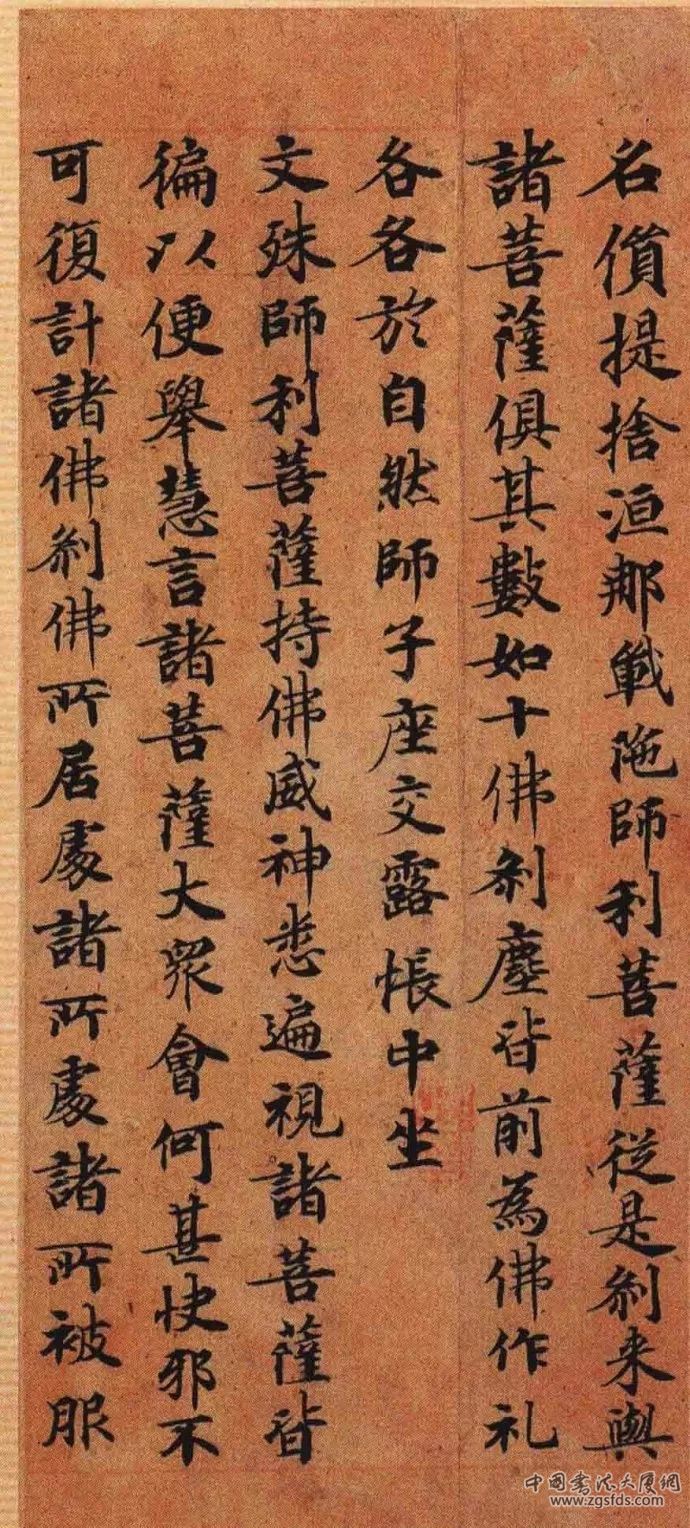 名償提捨洹那戰陁師利菩薩從是刹来與
諸菩薩俱其數如十佛刹塵皆前為佛作礼
各各於自然師子座交露帳中坐
文殊師利菩薩持佛威神悉遍視諸菩薩皆
徧以便舉慧言諸菩薩大眾會何甚快邪不
可復計諸佛刹佛所居處諸所處諸所被服
中国书法大厦网
www.zgsfds.com